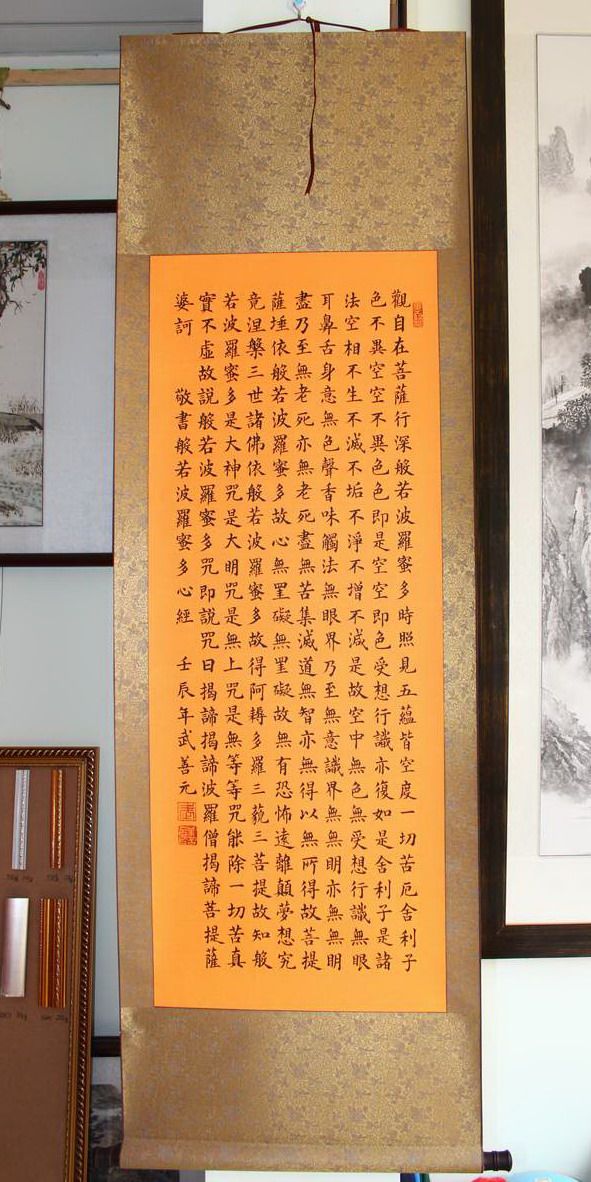 觀自在菩薩行深般若波羅蜜多時照見五蘊皆空度一切苦厄舍利子
色不異空空不異色色即是空空即色受想行識亦復如是舍利子是諸
法空相不生不滅不垢不淨不增不減是故空中無色無受想行識無眼
耳鼻舌身意無色聲香味觸法無眼界乃至無意識界無無明亦無無明
盡乃至無老死亦無老死盡無苦集滅道無智亦無得以無所得故菩提
薩埵依般若波羅蜜多故心無罣礙無罣礙故無有恐怖遠離顛夢想究
竟涅槃三世諸佛依般若波羅蜜多故得阿耨多羅三藐三菩提故知般
若波羅蜜多是大神咒是大明咒是無上咒是無等等咒能除一切苦真
實不虛故說般若波羅蜜多咒即說咒曰揭諦揭諦波羅僧揭諦菩提薩
婆訶 敬書般若波羅蜜多心經 壬辰年武善元